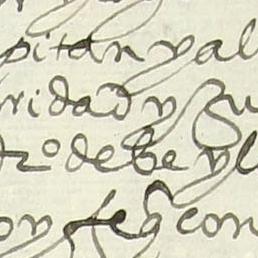 pitan y al
ridad y su
dro debe yl
oy fe q con